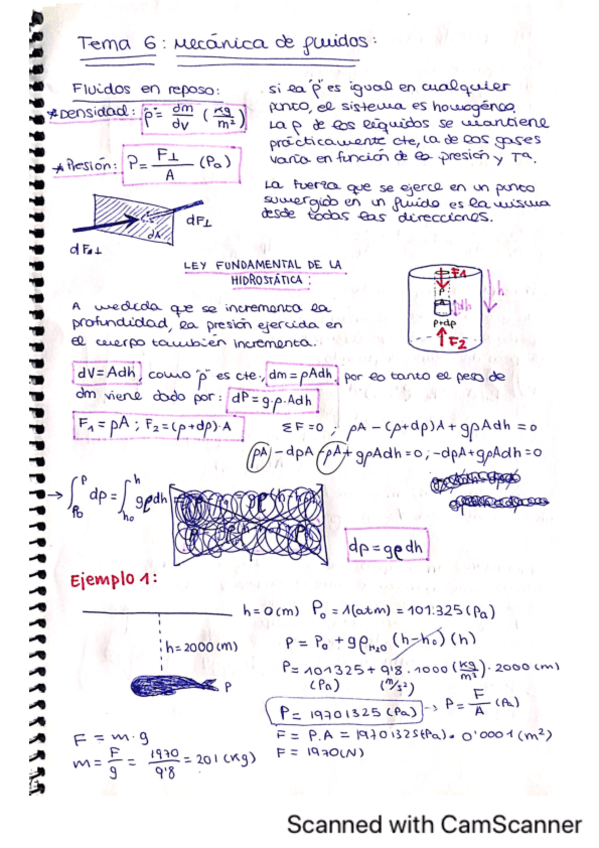 Tema 6: Mecánica de fluidos:
Fluidos en reposo:
*Densidad: "ρ" = dm/dv (kg/m²)
*Presión: P = F⊥/A (Pa)
dA
dF⊥
dF⊥
si la "ρ" es igual en cualquier
punto, el sistema es homogéneo.
La ρ de los líquidos se mantiene
prácticamente cte, la de los gases
varía en función de la presión y Tª.
La fuerza que se ejerce en un punto
sumergido en un fluido es la misma
desde todas las direcciones.
LEY FUNDAMENTAL DE LA
HIDROSTÁTICA:
A medida que se incrementa la
profundidad, la presión ejercida en
el cuerpo también incrementa.
F1
P
A
dh
h
p+dp
F2
dV = Adh, como "ρ" es cte., dm = ρAdh, por lo tanto el peso de
dm viene dado por: dP = g·ρ·Adh
F₁ = pA ; F₂ = (p+dp)·A
ΣF = 0 ; pA - (p+dp)A + gρAdh = 0
pA - dpA - pA + gρAdh = 0 ; -dpA + gρAdh = 0
→ ∫ᴾₚ₀ dp = ∫ʰₕ₀ gρdh
dp = gρdh
Ejemplo 1:
h = 0 (m) P₀ = 1(atm) = 101.325 (Pa)
h = 2000 (m)
P
P = P₀ + gρH₂O (h - h₀) (h)
P = 101325 + 9'8 · 1000 (kg/m³) · 2000 (m)
(Pa) (m/s²)
P = 19701325 (Pa) → P = F/A (Pa)
F = P.A = 19701325(Pa) · 0'0001 (m²)
F = 1970(N)
F = m·g
m = F/g = 1970/9'8 = 201 (kg)
Scanned with CamScanner